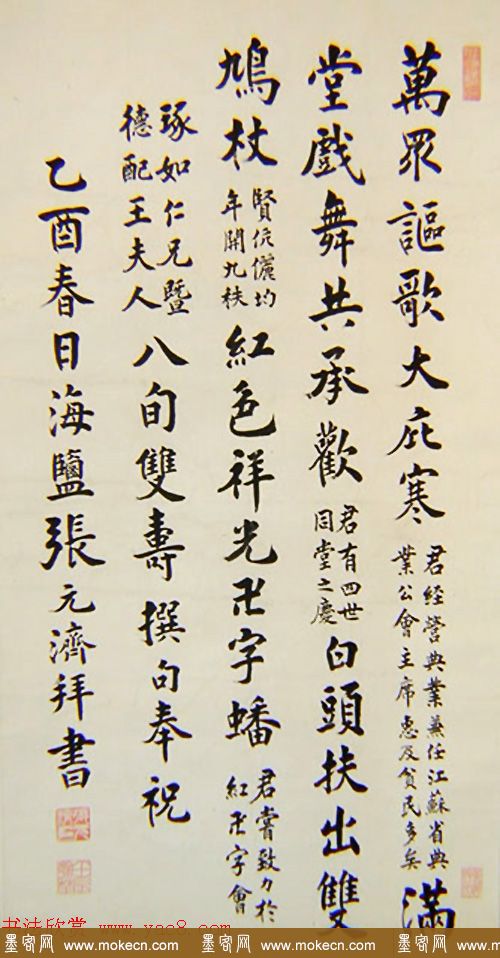 萬眾謳歌大庇寒君經營典業兼任江蘇省典業公會主席惠及貧民多矣滿
堂戲舞共承歡君有四世同堂之慶白頭扶出雙
鳩杖賢伉儷均年開九秩紅色祥光卍字蟠君嘗致力於紅卍字會
琢如仁兄暨德配王夫人八旬雙壽撰句奉祝
乙酉春日海鹽張元濟拜書
书法欣赏 www.yac8.com
墨客网 www.mokecn.com 墨客网 www.mokecn.com 墨客网